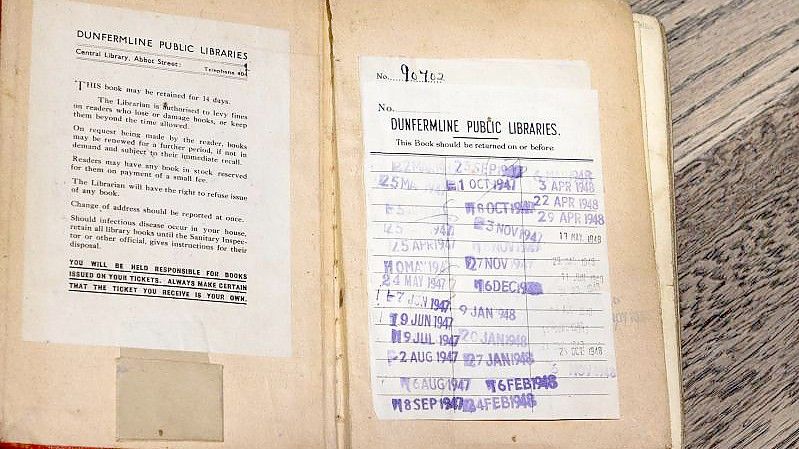 DUNFERMLINE PUBLIC LIBRARIES
Central Library, Abbot Street: Telephone
THIS book may be retained for 14 days.
The Librarian is authorised to levy fines
on readers who lose or damage books, or keep
them beyond the time allowed.
On request being made by the reader, books
may be renewed for a further period, if not in
demand and subject to their immediate recall.
Readers may have any book in stock reserved
for them on payment of a small fee.
The Librarian will have the right to refuse issue
of any book.
Change of address should be reported at once.
Should infectious disease occur in your house,
retain all library books until the Sanitary Inspec-
tor or other official, gives instructions for their
disposal.
YOU WILL BE HELD RESPONSIBLE FOR BOOKS
ISSUED ON YOUR TICKETS. ALWAYS MAKE CERTAIN
THAT THE TICKET YOU RECEIVE IS YOUR OWN.
No. 90702
No.
DUNFERMLINE PUBLIC LIBRARIES.
This Book should be returned on or before:
25 SEP
1 OCT 1947
3 APR 1948
8 OCT 1947
22 APR 1948
3 NOV 1947
29 APR 1948
NOV 1947
25 APR 1947
27 NOV
24 MAY 1947
16 DEC
7 JUN 1947
9 JAN 948
19 JUN 1947
20 JAN 1948
19 JUL 1947
27 JAN 1948
2 AUG 1947
16 AUG 1947
16 FEB 1948
18 SEP 1947
24 FEB 1948